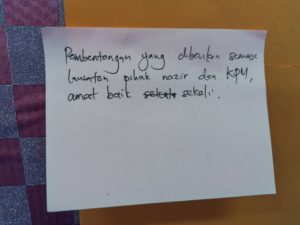 Pembentangan yang diberikan semasa
lawatan pihak nazir dan KPM,
amat baik sekali.